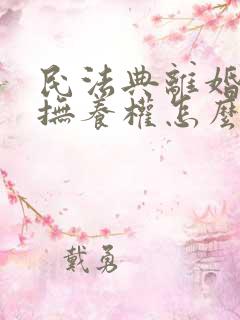 民法典離婚
撫養權怎麼
戴勇